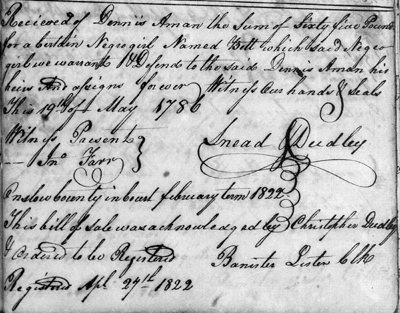 Recieved of Dennis Aman the Sum of Sixty five Pounds
for a certain Negro girl Named Bett which said Negro
girl we warrant & Defend to the said Dennis Aman his
heirs And assigns forever Witness Our hands & Seals
This 19th of May 1786
Witness Present
Jno Farr
Snead Dudley
Onslow County in Court february term 1822
This bill of Sale was acknowledged by Christopher Dudley
& Ordered to be Registered
Banister Lester Clk
Registered Apl 27th 1822